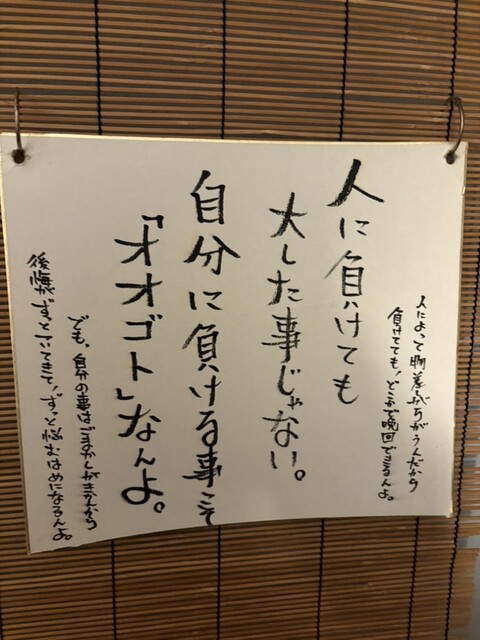 人によって物差しがちがうんだから
負けてても、どこかで晩回できるんよ。
人に負けても
大した事じゃない。
自分に負ける事こそ
「オオゴト」なんよ。
でも、自分の事はごまかしがきかんから
後悔がずっとついてきて、ずっと悩むはめになるんよ。